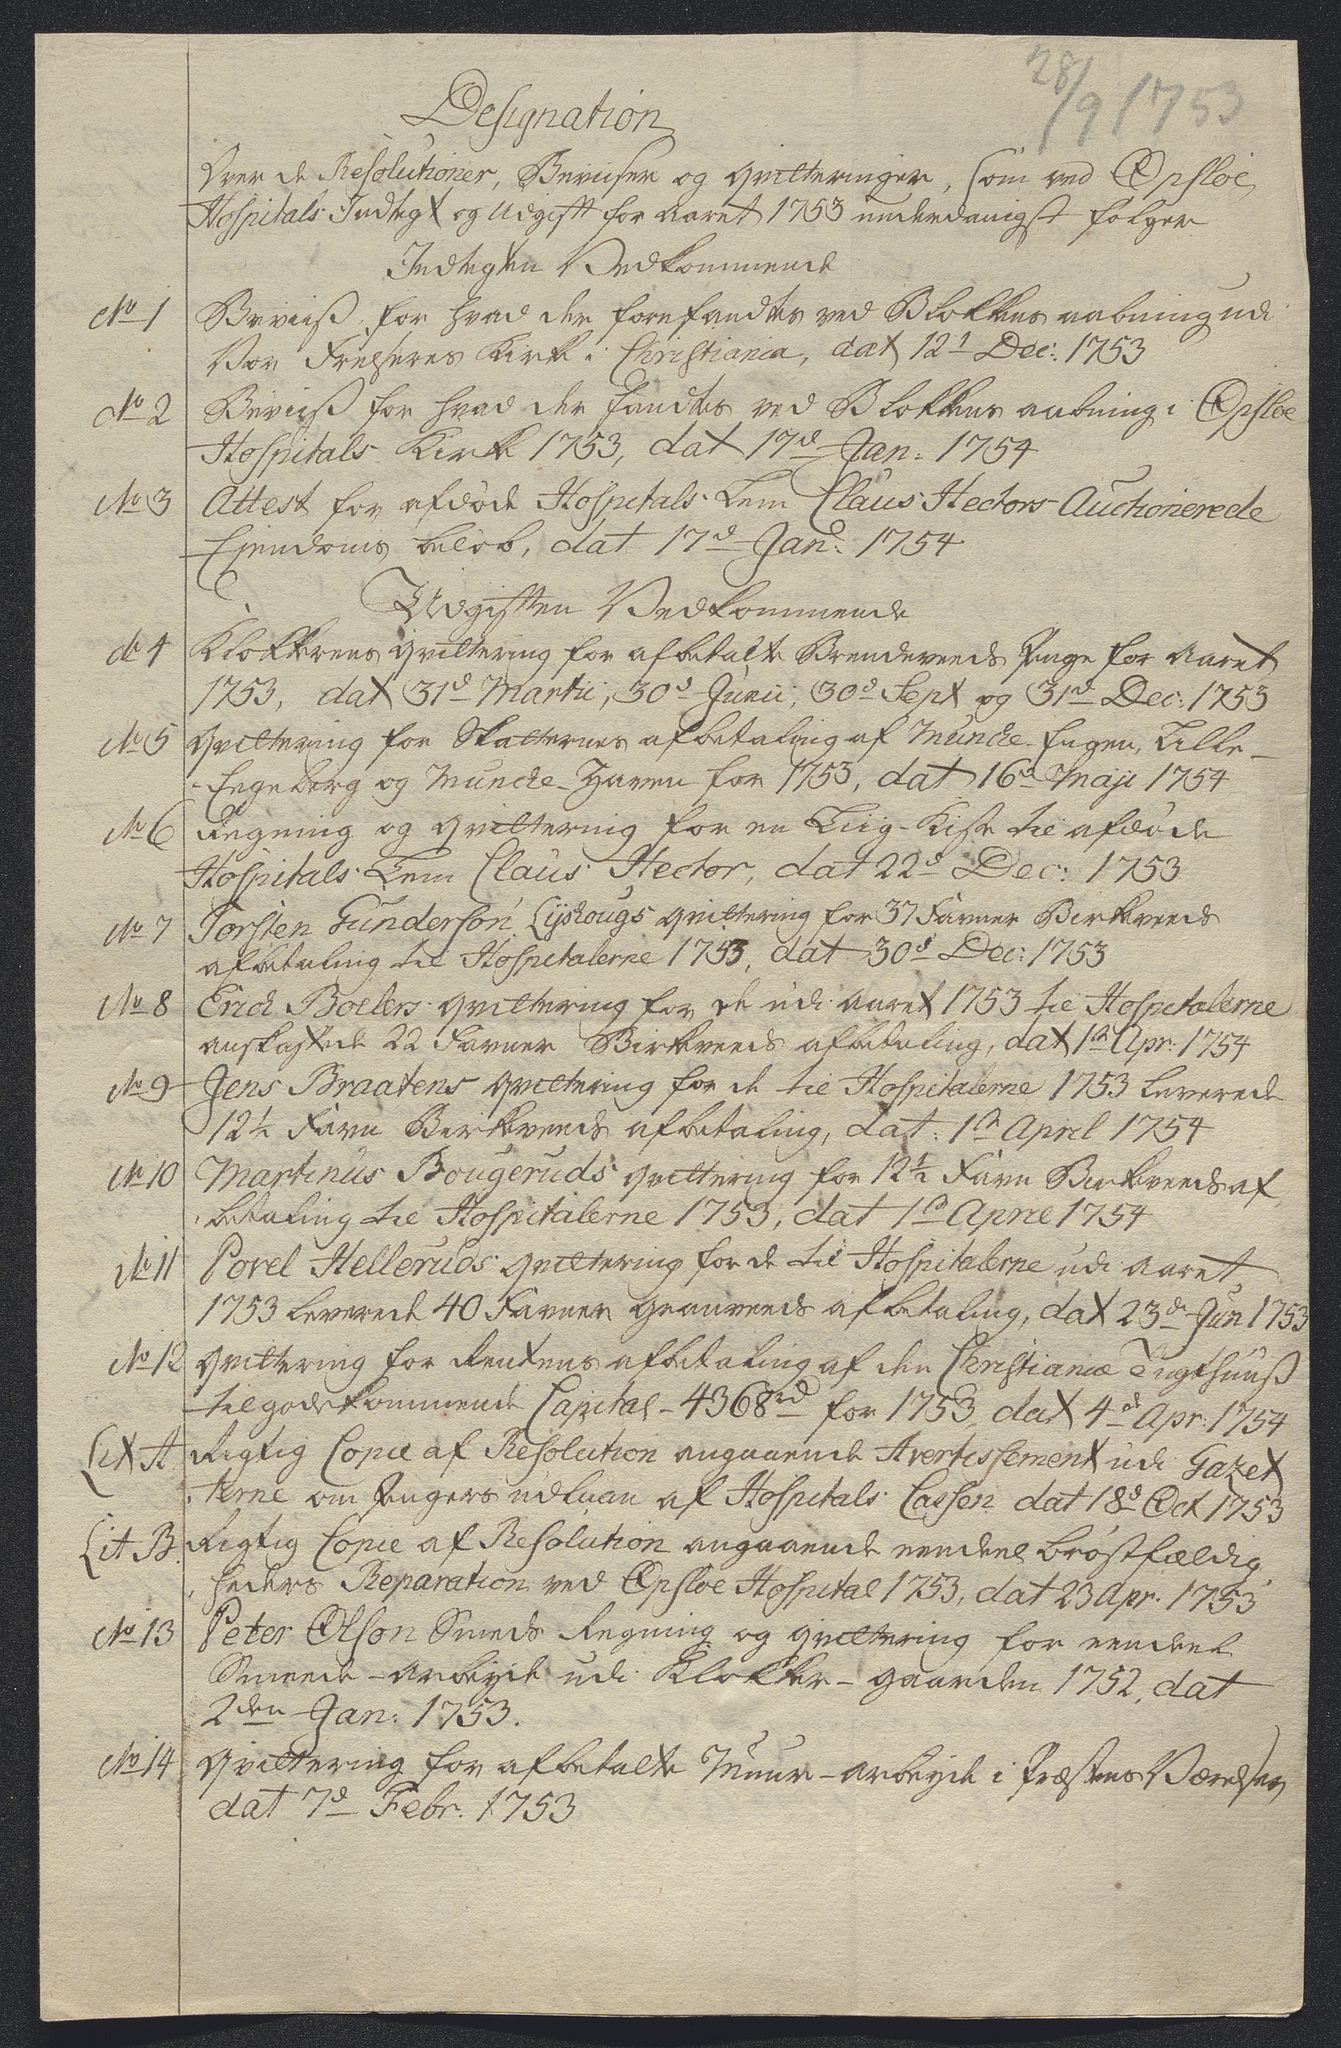 28/9 1753
Designation
Over de Resolutioner, Beviiser og qvitteringer, som ved Opsloe
Hospitals Indtegt og Udgift for Aaret 1753 underdanigst følger
Indtegten Vedkommende
No 1 Beviiß for hvad der forefandtes ved Blokkens aabning udi
Vor Frelseres Kirke i Christiania, dat 12 Dec: 1753
No 2 Beviiß for hvad der fandtes ved Blokkens aabning i Opsloe
Hospitals Kirke 1753, dat 17d Jan: 1754
No 3 Attest for afdøde Hospitals Lem Claus Hectors Auctionerede
Ejendoms beløb, dat 17d Jan: 1754
Udgiften Vedkommende
No 4 Klokkerens qvittering for afbetalte Brendeveeds Penge for Aaret
1753, dat 31d Martii, 30d Junii, 30d Sept og 31d Dec: 1753
No 5 qvittering for Skatternes afbetaling af Muncke-Engen, Lille-
Engeberg og Muncke-Haven for 1753, dat 16d Maji 1754
No 6 Regning og qvittering for en Liig-Kiste til afdøde
Hospitals Lem Claus Hector, dat 22d Dec: 1753
No 7 Torsten Gunderson Lijskougs qvittering for 37 Favner Birkeveeds
afbetaling til Hospitalerne 1753, dat 30d Dec: 1753
No 8 Erick Boelers qvittering for de udi Aaret 1753 til Hospitalerne
anskaffede 22 Favner Birkeveeds afbetaling, dat 1st Apr: 1754
No 9 Jens Braatens qvittering for de til Hospitalerne 1753 leverede
12½ Favn Birkeveeds afbetaling, dat: 1st April 1754
No 10 Martinus Bougeruds qvittering for 12½ Favn Birkeveeds af
betaling til Hospitalerne 1753, dat 1st April 1754
No 11 Povel Helleruds qvittering for de til Hospitalerne udi Aaret
1753 leverede 40 Favner Granveeds afbetaling, dat 23d Jun 1753
No 12 qvittering for Rentens afbetaling af den Christiania Tugthuuß
tilgodekommende Capital - 4368rd for 1753 dat 4d Apr: 1754
Lit A Rigtig Copie af Resolution angaaende Avertissement udi Gazet
terne om Penges udlaan af Hospitals Cassen dat 18d Oct 1753
Lit B. Rigtig Copie af Resolution angaaende eendeel brøstfældig
heders Reparation ved Opsloe Hospital 1753, dat 23 Apr. 1753
No 13 Peter Olson Smeds Regning og qvittering for eendeel
Smede-arbeyde udi Klokker-gaarden 1752, dat
2den Jan: 1753.
No 14 qvittering for afbetalte Muur-arbeyde i Præstens Værelser
dat 7d Febr. 1753